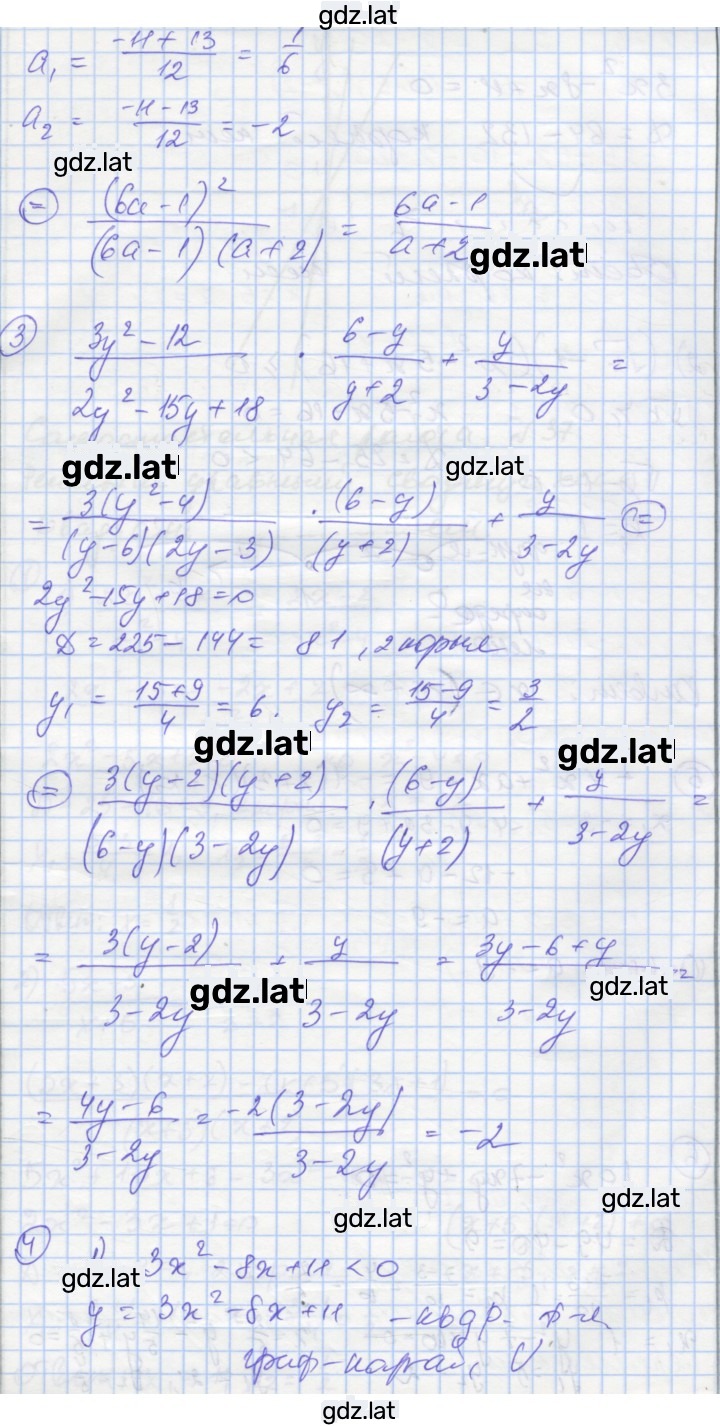 gdz.lat
a₁ = (-11+13)/12 = 1/6
a₂ = (-11-13)/12 = -2
gdz.lat
⊜ (6a-1)²/((6a-1)(a+2)) = (6a-1)/(a+2)
gdz.lat
③ (3y²-12)/(2y²-15y+18) · (6-y)/(y+2) + y/(3-2y) =
gdz.lat gdz.lat
= 3(y²-4)/((y-6)(2y-3)) · (6-y)/(y+2) + y/(3-2y) ⊜
2y²-15y+18=0
D = 225-144 = 81, 2 корня
y₁ = (15+9)/4 = 6. y₂ = (15-9)/4 = 3/2
gdz.lat gdz.lat
⊜ 3(y-2)(y+2)/((6-y)(3-2y)) · (6-y)/(y+2) + y/(3-2y) =
= 3(y-2)/(3-2y) + y/(3-2y) = (3y-6+y)/(3-2y) =
gdz.lat gdz.lat
= (4y-6)/(3-2y) = -2(3-2y)/(3-2y) = -2
gdz.lat
gdz.lat
④ 1) 3x²-8x+11<0
gdz.lat
y = 3x²-8x+11 - квдр. ф-я
граф-парай,
gdz.lat